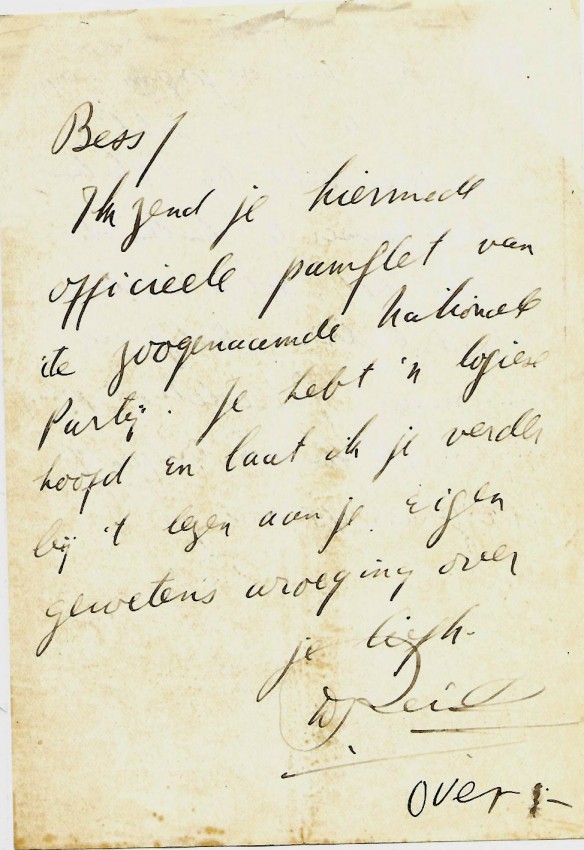 Bess /
Ik zend je hiermede
officieele pamflet van
de zoogenaamde Nationale
Partij. Je hebt 'n logiese
hoofd en laat ik je verder
bij 't lezen aan je eigen
gewetens wroeging over
je
over :-